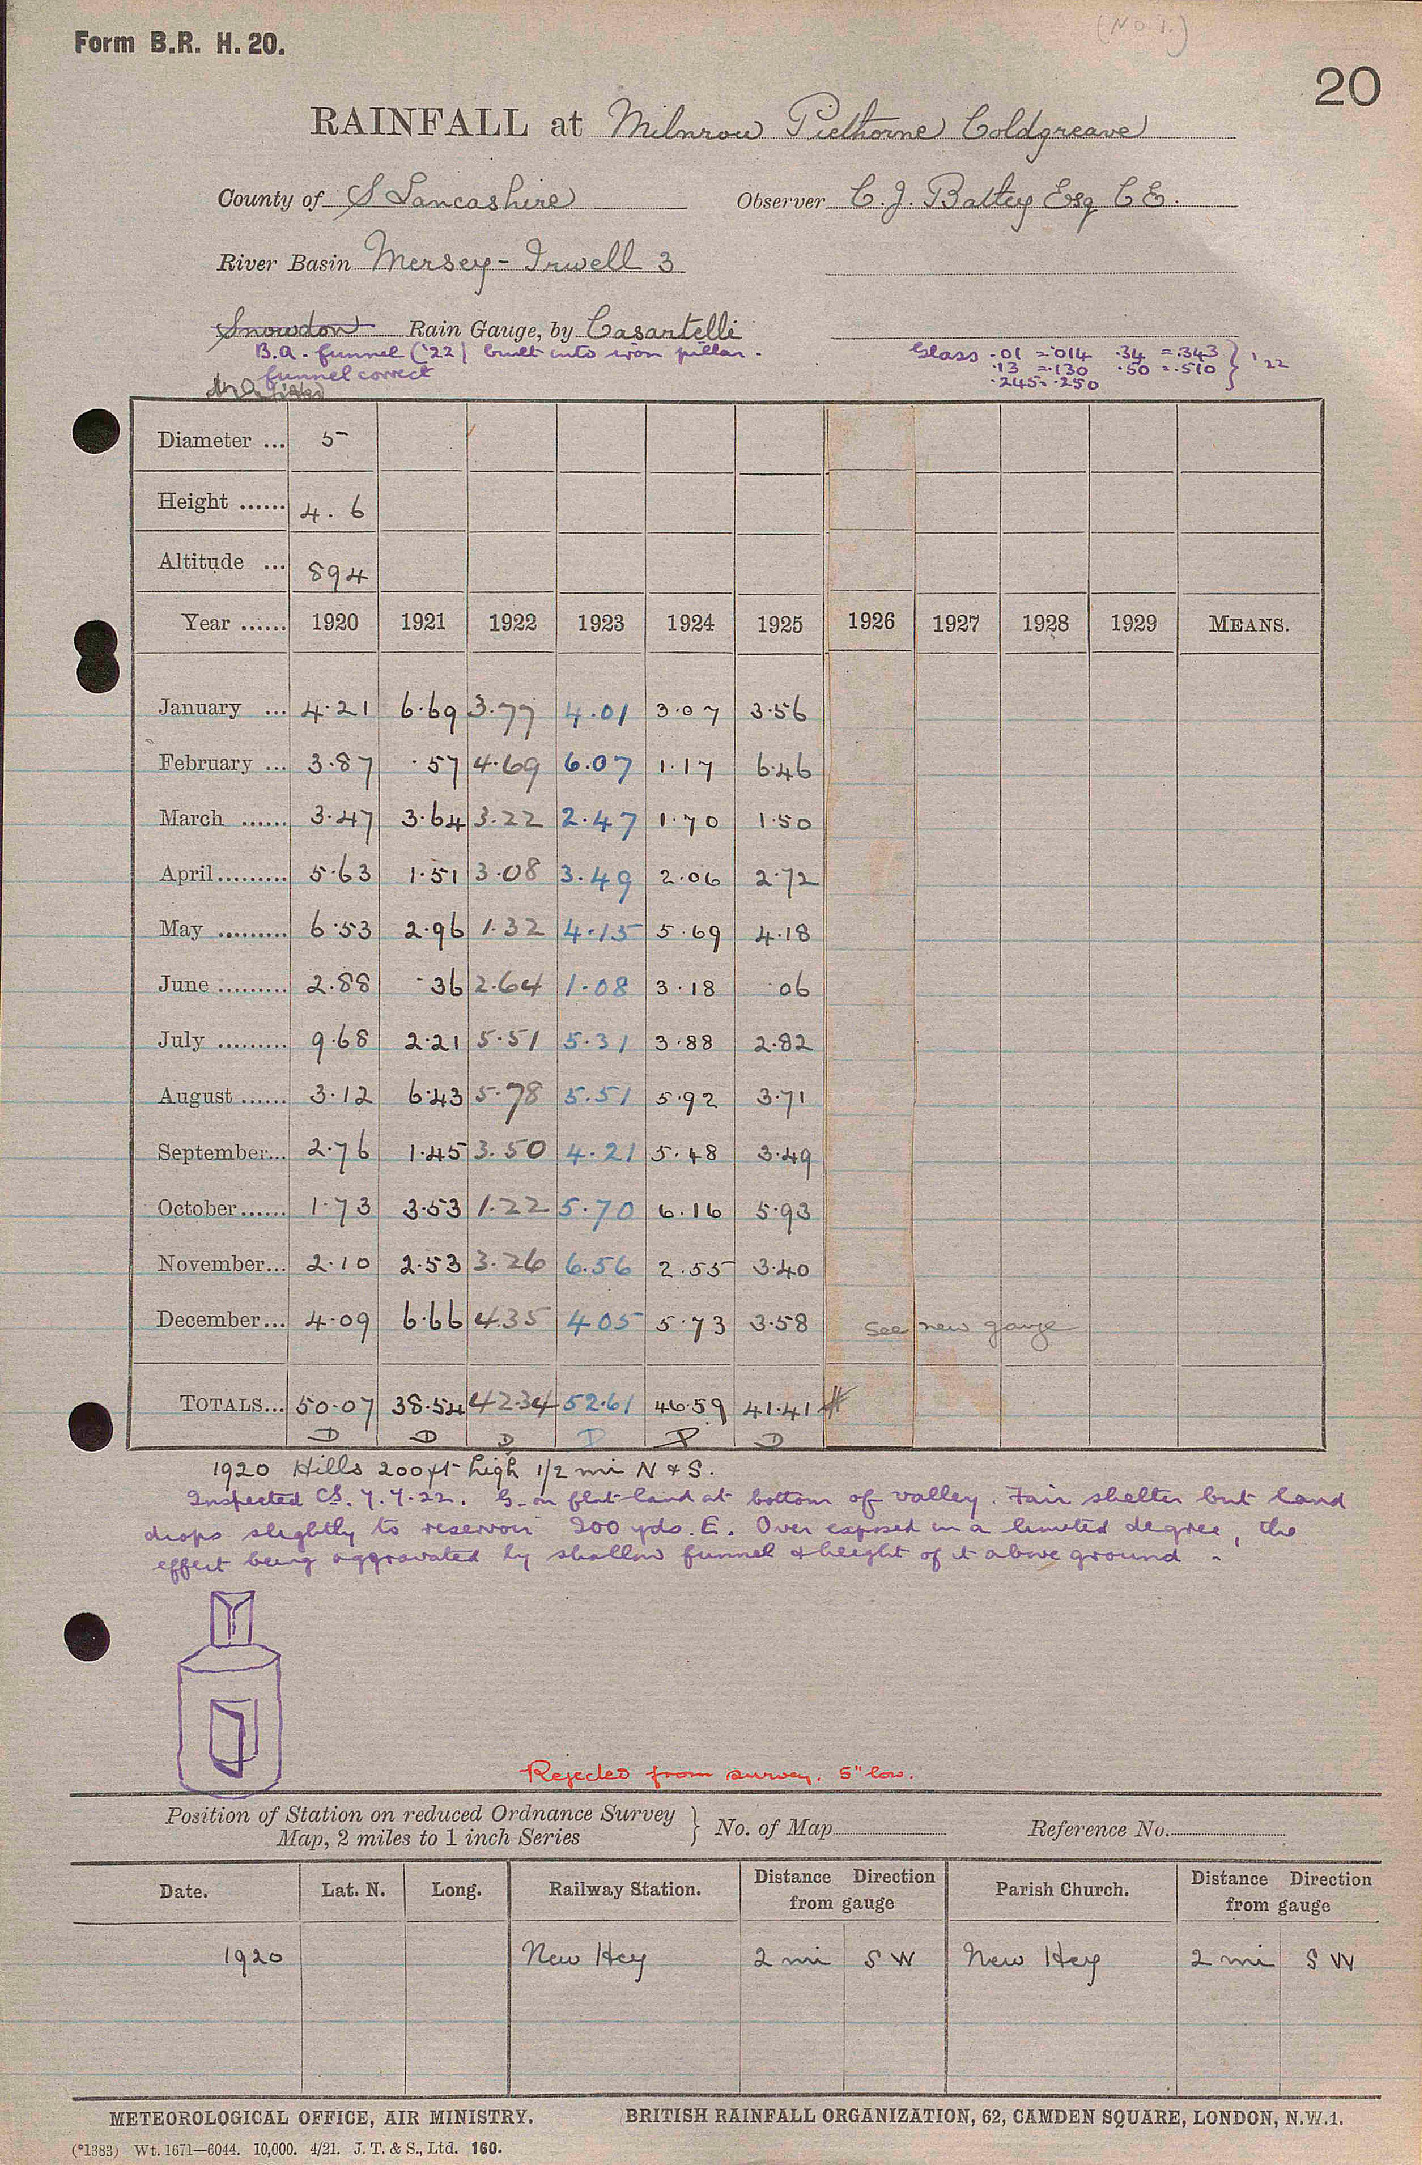 (No 1.)
Form B.R. H. 20.
20
RAINFALL at Milnrow Piethorne Coldgreave
County of S Lancashire Observer C. J. Batley Esq C E.
River Basin Mersey - Irwell 3
Snowdon Rain Gauge, by Casartelli
B.A. funnel ('22) built into iron pillar.
funnel correct
Glass .01 = .014 .34 = .343 } '22
.13 = .130 .50 = .510
.245 = .250
Diameter ... 5
Height ...... 4. 6
Altitude ... 894
Year ...... 1920 1921 1922 1923 1924 1925 1926 1927 1928 1929 MEANS.
January ... 4.21 6.69 3.77 4.01 3.07 3.56
February ... 3.87 .57 4.69 6.07 1.17 6.46
March ...... 3.47 3.64 3.22 2.47 1.70 1.50
April ......... 5.63 1.51 3.08 3.49 2.06 2.72
May ......... 6.53 2.96 1.32 4.15 5.69 4.18
June ......... 2.88 .36 2.64 1.08 3.18 .06
July ......... 9.68 2.21 5.51 5.31 3.88 2.82
August ...... 3.12 6.43 5.78 5.51 5.92 3.71
September... 2.76 1.45 3.50 4.21 5.48 3.49
October...... 1.73 3.53 1.22 5.70 6.16 5.93
November... 2.10 2.53 3.26 6.56 2.55 3.40
December... 4.09 6.66 4.35 4.05 5.73 3.58 see new gauge
TOTALS... 50.07 38.54 42.34 52.61 46.59 41.41 #
D D D D D D
1920 Hills 200 ft high 1/2 mi N & S.
Inspected CS. 7.7.22. G. on flat land at bottom of valley. Fair shelter but land
drops slightly to reservoir 200 yds. E. Over exposed in a limited degree, the
effect being aggravated by shallow funnel & height of it above ground.
Rejected from survey. 5" low.
Position of Station on reduced Ordnance Survey
Map, 2 miles to 1 inch Series } No. of Map Reference No.
Date. Lat. N. Long. Railway Station. Distance Direction from gauge Parish Church. Distance Direction from gauge
1920 New Hey 2 mi S W New Hey 2 mi S W
METEOROLOGICAL OFFICE, AIR MINISTRY. BRITISH RAINFALL ORGANIZATION, 62, CAMDEN SQUARE, LONDON, N.W.1.
(*1383) Wt. 1671—6044. 10,000. 4/21. J. T. & S., Ltd. 160.